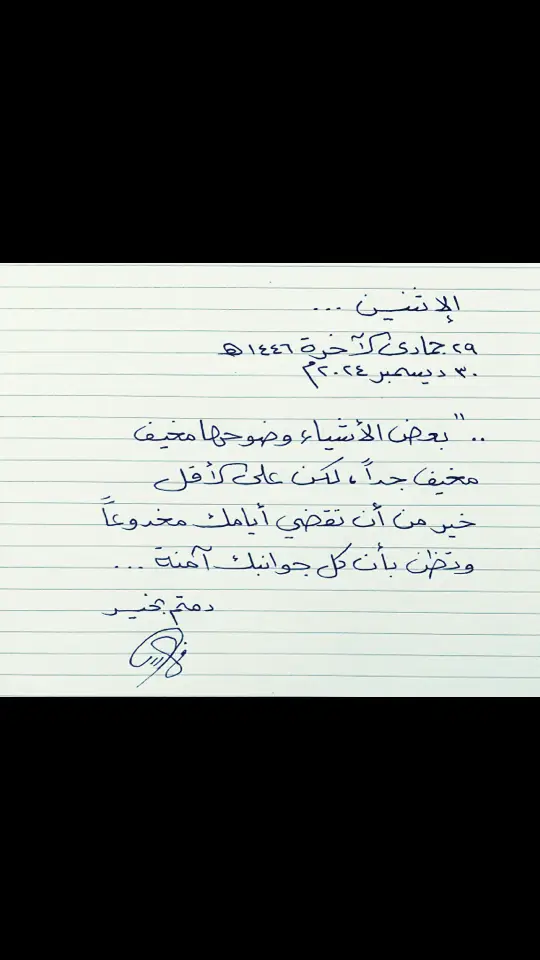 الإثنين ...
٢٩ جمادى الآخرة ١٤٤٦هـ
٣٠ ديسمبر ٢٠٢٤م
.." بعض الأشياء وضوحها مخيف
مخيف جداً، لكن على الأقل
خير من أن تقضي أيامك مخدوعاً
وتظن بأن كل جوانبك آمنة ...
دمتم بخير